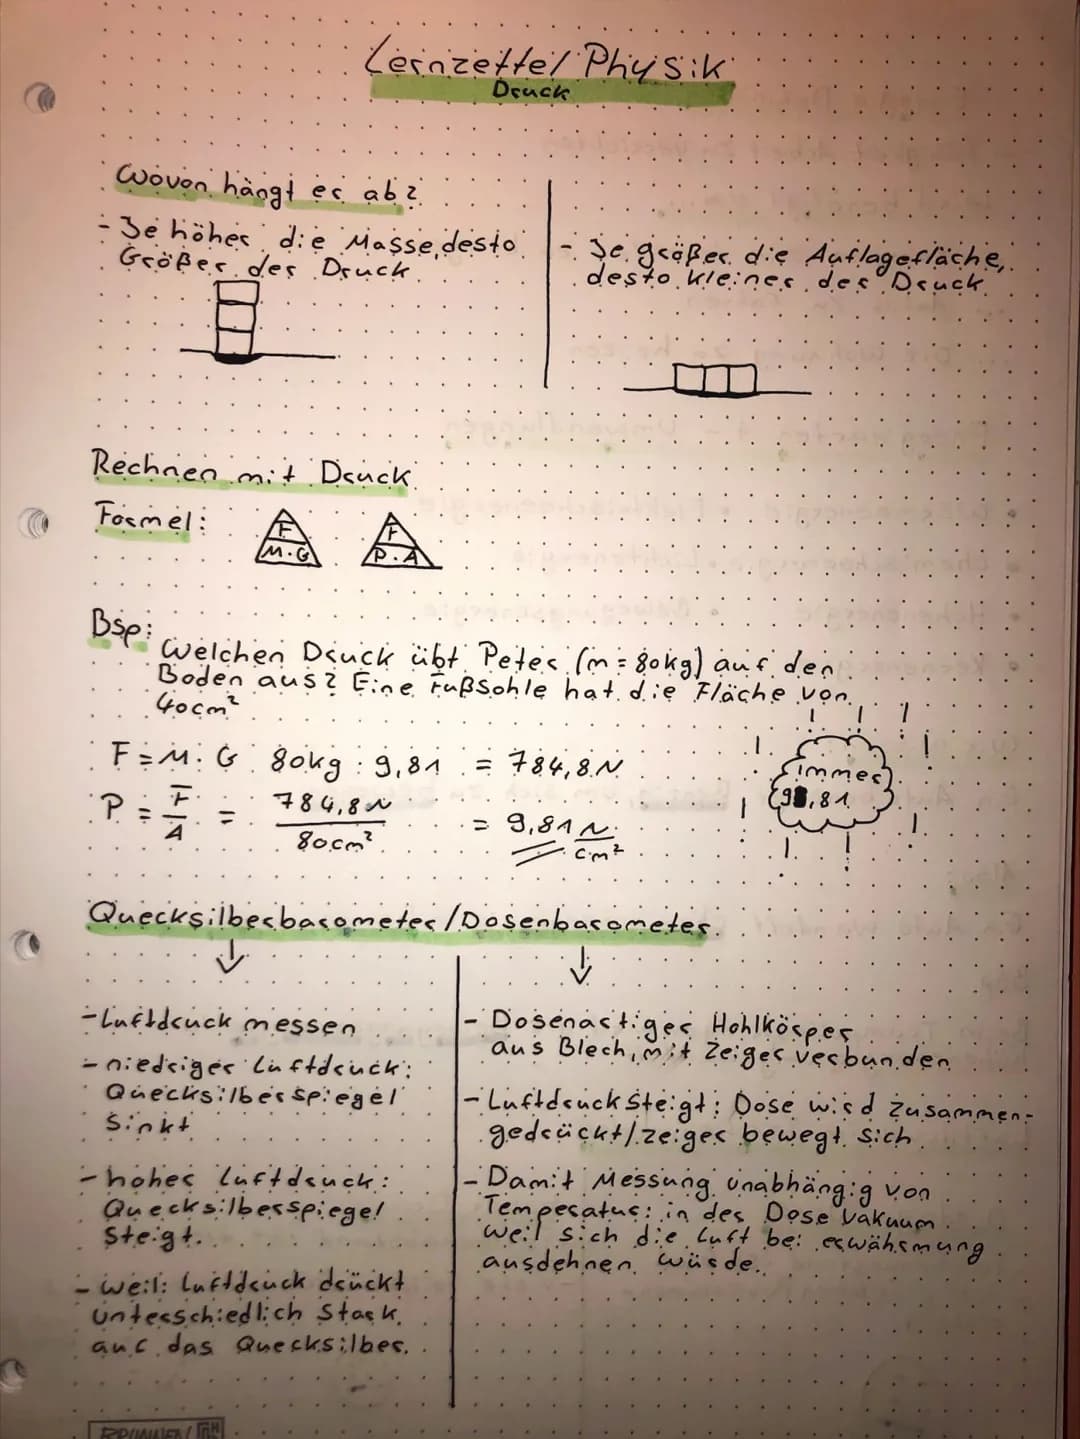 Lernzettel Physik
Druck
Wovon hängt er ab?
- Je höher die Masse, desto
Größer der Druck
- Je größer die Auflagefläche,
desto kleiner der Druck
Rechnen mit Druck
Formel:
F
M·G
F
P·A
Bsp:
Welchen Druck übt Peter (m = 80kg) auf den
Boden aus? Eine Fußsohle hat die Fläche von
40cm²
F = M · G 80kg · 9,81 = 784,8 N
P = F/A = 784,8N/80cm² = 9,81 N/cm²
immer
9,81
Quecksilberbarometer/Dosenbarometer
- Luftdruck messen
- niedriger Luftdruck:
Quecksilberspiegel
sinkt
- hoher Luftdruck:
Quecksilberspiegel
steigt.
- weil: Luftdruck drückt
unterschiedlich stark
auf das Quecksilber.
- Dosenartiger Hohlkörper
aus Blech, mit Zeiger verbunden
- Luftdruck steigt: Dose wird zusammen-
gedrückt/zeiger bewegt sich
- Damit Messung unabhängig von
Temperatur: in der Dose Vakuum
weil sich die Luft bei erwährmung
ausdehnen würde.
BRUNNEN